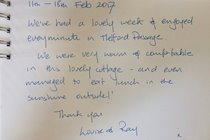 11th - 18th Feb 2017
We've had a lovely week & enjoyed
every minute in Tetford Passage.
We were very warm & comfortable
in this lovely cottage - and even
managed to eat lunch in the
sunshine outside!
Thank you
Louise & Ray
x